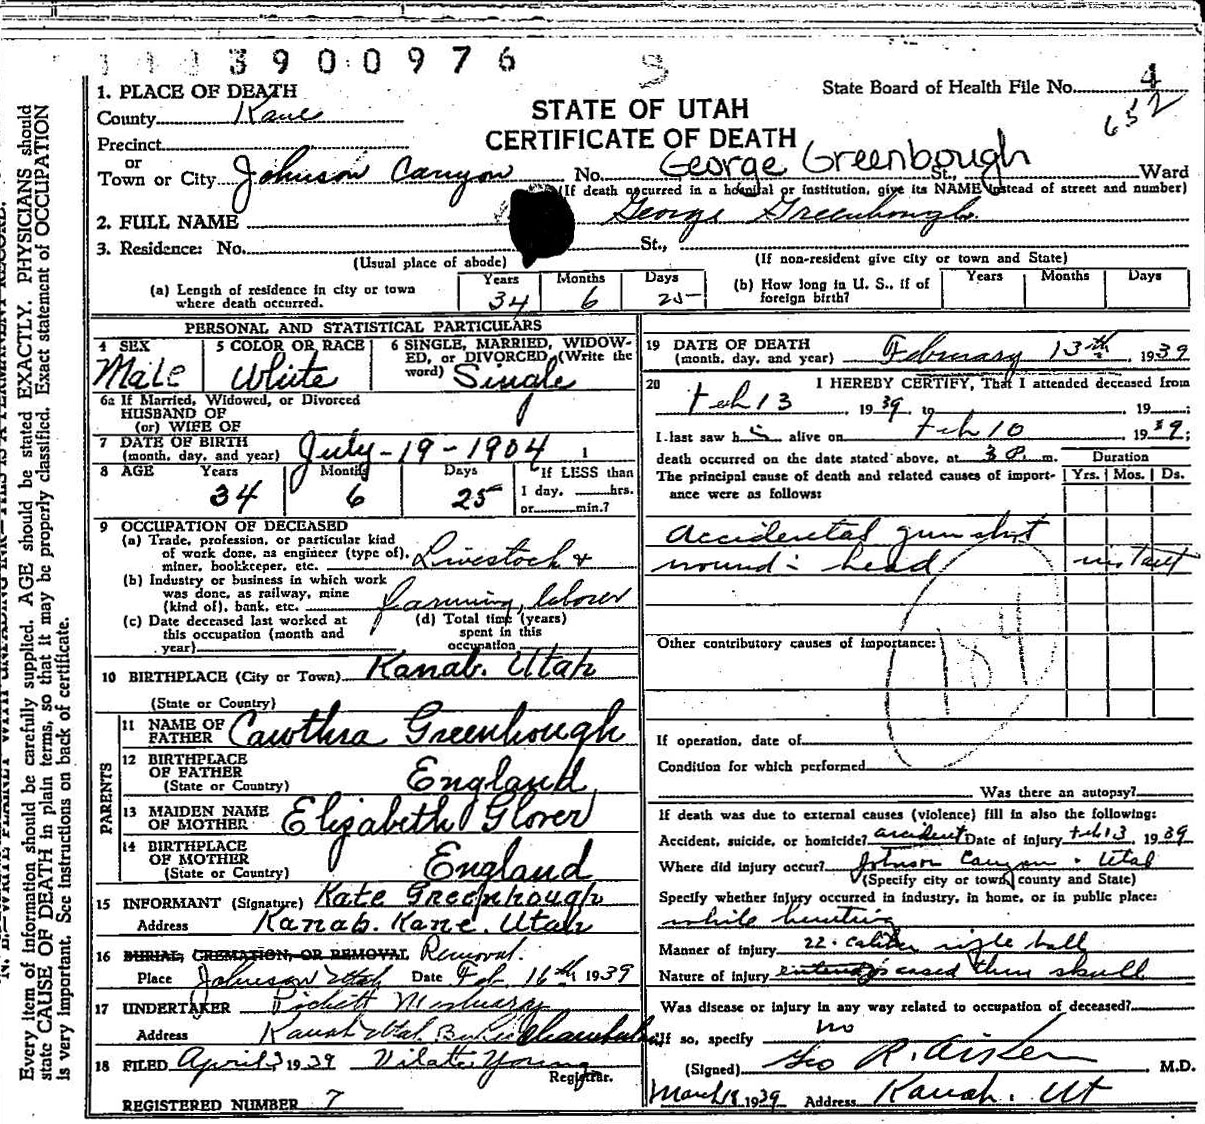 1 1 1 3 9 0 0 9 7 6
S
State Board of Health File No. 4
652
1. PLACE OF DEATH
County Kane
STATE OF UTAH
CERTIFICATE OF DEATH
Precinct
or
Town or City Johnson Canyon No. George Greenbough St., Ward
(If death occurred in a hospital or institution, give its NAME instead of street and number)
2. FULL NAME George Greenhough
3. Residence: No. St.,
(Usual place of abode) (If non-resident give city or town and State)
(a) Length of residence in city or town where death occurred. Years 34 Months 6 Days 25
(b) How long in U. S., if of foreign birth? Years Months Days
PERSONAL AND STATISTICAL PARTICULARS
4 SEX Male
5 COLOR OR RACE White
6 SINGLE, MARRIED, WIDOWED, or DIVORCED, (Write the word) Single
6a If Married, Widowed, or Divorced
HUSBAND OF
(or) WIFE OF
7 DATE OF BIRTH
(month, day, and year) July-19-1904
8 AGE Years 34 Months 6 Days 25 If LESS than
1 day, hrs.
or min.?
9 OCCUPATION OF DECEASED
(a) Trade, profession, or particular kind
of work done, as engineer (type of),
miner, bookkeeper, etc. Livestock &
(b) Industry or business in which work
was done, as railway, mine
(kind of), bank, etc. farming, laborer
(c) Date deceased last worked at
this occupation (month and
year)
(d) Total time (years)
spent in this
occupation
10 BIRTHPLACE (City or Town) Kanab. Utah
(State or Country)
PARENTS
11 NAME OF
FATHER Cawthra Greenhough
12 BIRTHPLACE
OF FATHER
(State or Country) England
13 MAIDEN NAME
OF MOTHER Elizabeth Glover
14 BIRTHPLACE
OF MOTHER
(State or Country) England
15 INFORMANT (Signature) Kate Greenhough
Address Kanab. Kane. Utah
16 BURIAL, CREMATION, OR REMOVAL Removal.
Place Johnson Utah Date Feb. 16th 1939
17 UNDERTAKER Mortuary
Address Kanab Utah
18 FILED April 3 1939 Vilate Young
Registrar.
REGISTERED NUMBER 7
19 DATE OF DEATH
(month, day, and year) February 13th, 1939
20 I HEREBY CERTIFY, That I attended deceased from
Feb 13 1939, to 19 ;
I last saw h alive on Feb 10 1939;
death occurred on the date stated above, at 3 P. m.
Duration
Yrs. Mos. Ds.
The principal cause of death and related causes of importance were as follows:
Accidental gun shot
wound - head instant
184
Other contributory causes of importance:
If operation, date of
Condition for which performed
Was there an autopsy?
If death was due to external causes (violence) fill in also the following:
Accident, suicide, or homicide? accident Date of injury Feb 13 1939
Where did injury occur? Johnson Canyon. Utah
(Specify city or town, county and State)
Specify whether injury occurred in industry, in home, or in public place:
while hunting
Manner of injury 22. caliber rifle ball
Nature of injury thru skull
Was disease or injury in any way related to occupation of deceased?
If so, specify no
(Signed) Geo R. Aiken M.D.
March 18 1939 Address Kanab. Ut
Every item of information should be carefully supplied. AGE should be stated EXACTLY. PHYSICIANS should
state CAUSE OF DEATH in plain terms, so that it may be properly classified. Exact statement of OCCUPATION
is very important. See instructions on back of certificate.